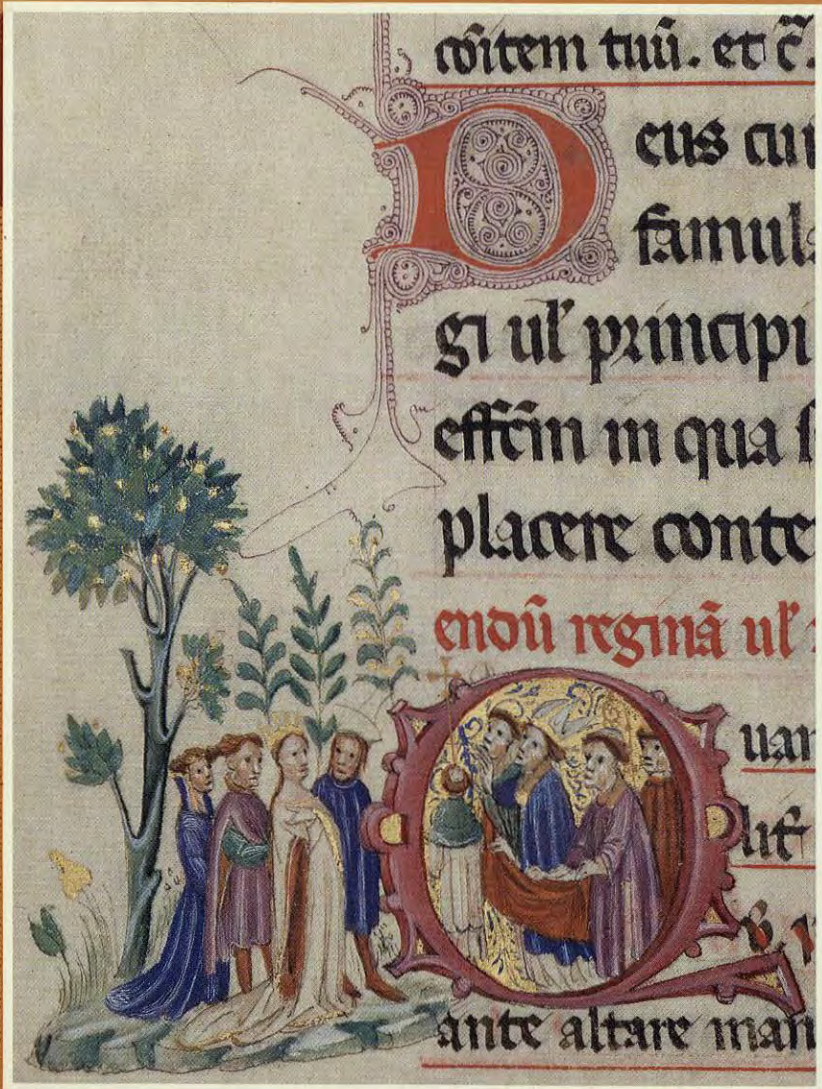 cōitem tuū. et c̄.
Deus cui
famula
gi ul̄ principi
effcīn in qua
placere conte
endū reginā ul̄
Quan
lit̄
ante altare man